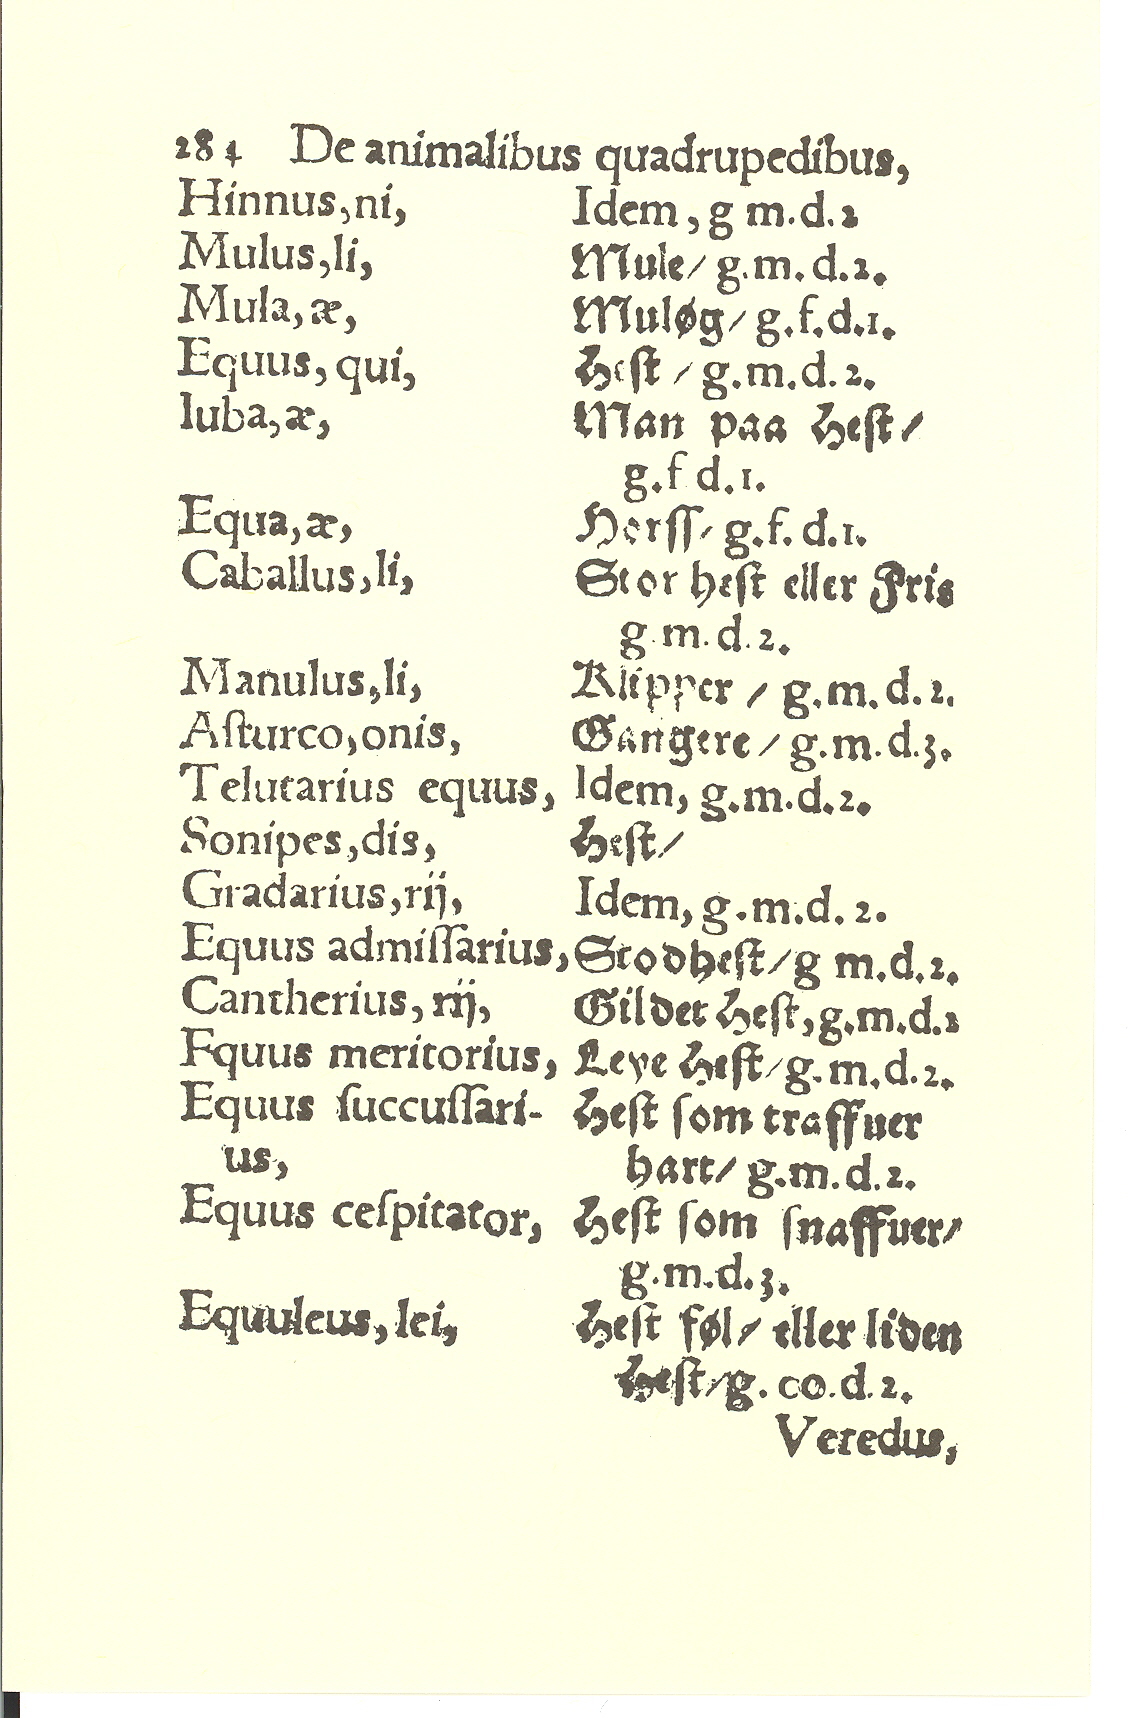 284 De animalibus quadrupedibus,
Hinnus,ni, Idem, g m.d.2
Mulus,li, Mule/ g.m.d.2.
Mula,æ, Muløg/ g.f.d.1.
Equus,qui, Hest / g.m.d.2.
Iuba,æ, Man paa Hest/
g.f d.1.
Equa,æ, Horſſ/ g.f.d.1.
Caballus,li, Stor heſt eller Pris
g.m.d.2.
Manulus,li, Klipper / g.m.d.2.
Aſturco,onis, Gangere/ g.m.d.3.
Telutarius equus, Idem, g.m.d.2.
Sonipes,dis, Heſt/
Gradarius,rij, Idem, g.m.d.2.
Equus admiſſarius, Stodheſt/g m.d.2.
Cantherius,rij, Gildet Heſt,g.m.d.2
Fquus meritorius, Leye Heſt/g.m.d.2.
Equus ſuccuſſari- Heſt ſom traffuer
us, hart/ g.m.d.2.
Equus ceſpitator, Heſt ſom ſnaffuer/
g.m.d.3.
Equuleus,lei, Heſt føl/ eller liden
Heſt/g.co.d.2.
Veredus,